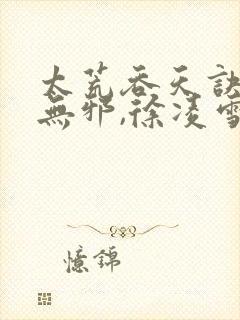 太荒吞天訣
無邪,徐凌雪
憶錦